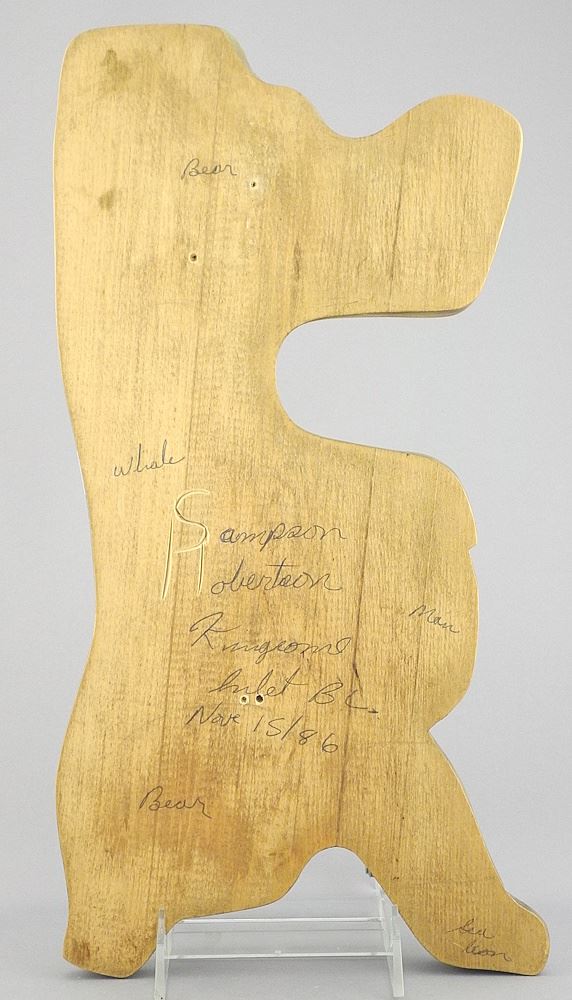 Bear
Whale
Sampson
Robertson
Man
Kingcome
Inlet B.C.
Nov 15/86
Bear
Sea
lion